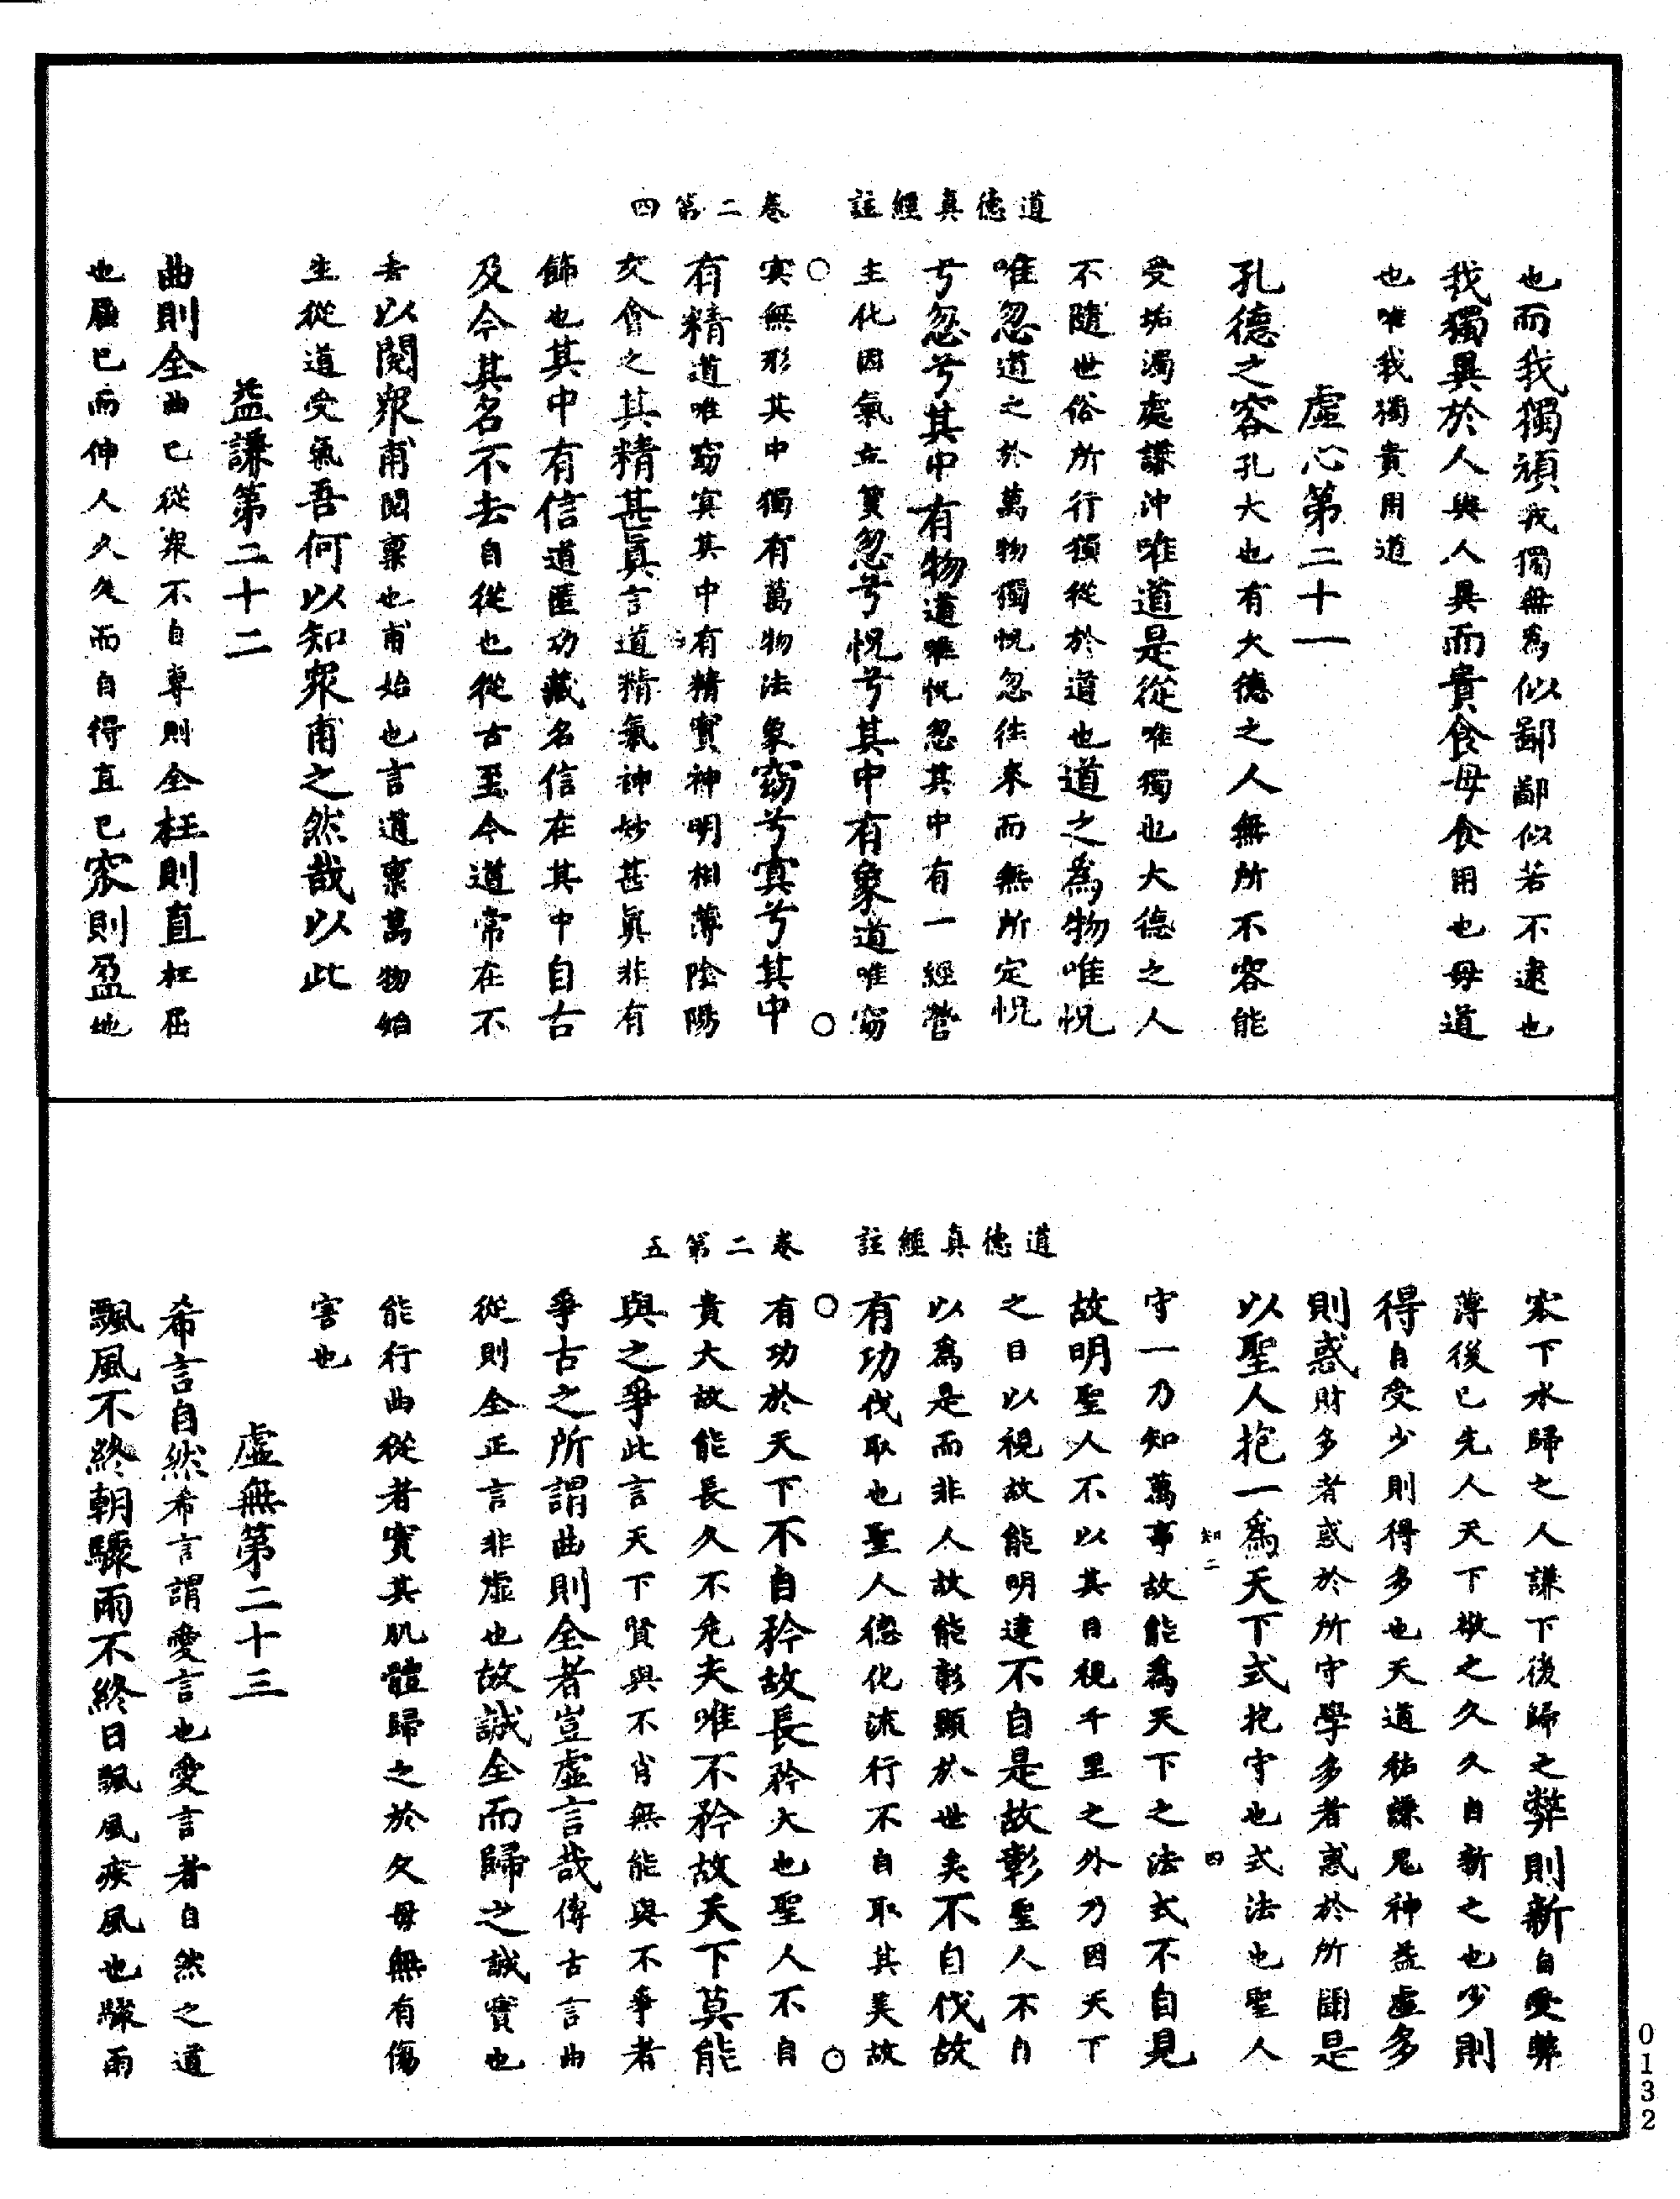 道德真經註　卷二第四
也而我獨頑我獨無為似鄙鄙似若不逮也
我獨異於人與人異而貴食母食用也母道
也唯我獨貴用道
虛心第二十一
孔德之容孔大也有大德之人無所不容能
受垢濁處謙沖唯道是從唯獨也大德之人
不隨世俗所行獨從於道也道之為物唯怳
唯忽道之於萬物獨怳忽往來而無所定怳
兮忽兮其中有物道唯怳忽其中有一經營
主化因氣立質忽兮怳兮其中有象道唯窈
冥無形其中獨有萬物法象窈兮冥兮其中
有精道唯窈冥其中有精實神明相薄陰陽
交會之其精甚真言道精氣神妙甚真非有
飾也其中有信道匿功藏名信在其中自古
及今其名不去自從也從古至今道常在不
去以閱眾甫閱稟也甫始也言道稟萬物始
生從道受氣吾何以知眾甫之然哉以此
益謙第二十二
曲則全曲己從眾不自專則全枉則直枉屈
也屈己而伸人久久而自得直己窊則盈地
道德真經註　卷二第五
窊下水歸之人謙下後歸之弊則新自受弊
薄後己先人天下敬之久久自新之也少則
得自受少則得多也天道祐謙鬼神益虛多
則惑財多者惑於所守學多者惑於所聞是
以聖人抱一為天下式抱守也式法也聖人
知二　四
守一乃知萬事故能為天下之法式不自見
故明聖人不以其目視千里之外乃因天下
之目以視故能明達不自是故彰聖人不自
以為是而非人故能彰顯於世矣不自伐故
有功伐取也聖人德化流行不自取其美故
有功於天下不自矜故長矜大也聖人不自
貴大故能長久不危夫唯不矜故天下莫能
與之爭此言天下賢與不肖無能與不爭者
爭古之所謂曲則全者豈虛言哉傳古言曲
從則全正言非虛也故誠全而歸之誠實也
能行曲從者實其肌體歸之於父母無有傷
害也
虛無第二十三
希言自然希言謂愛言也愛言者自然之道
飄風不終朝驟雨不終日飄風疾風也驟雨
0132